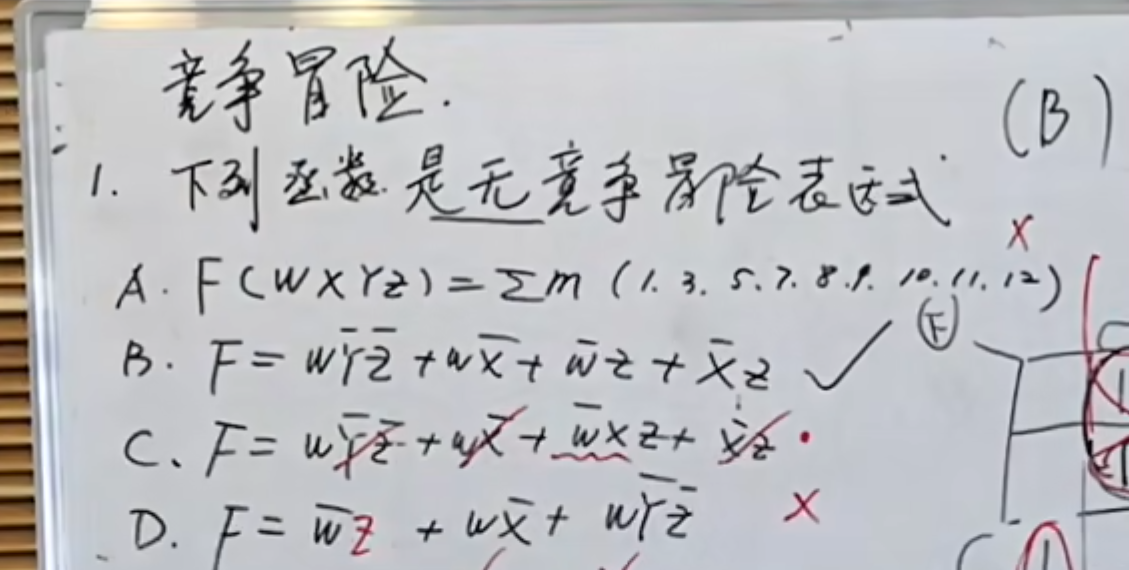 竞争冒险.
(B)
1. 下列函数是无竞争冒险表达式
A. F(WXYZ)=Σm(1.3.5.7.8.9.10.11.12) ×
B. F=wY̅Z̅+wX̅+w̅z+X̅z ✓
C. F=wY̅Z̅+wX̅+w̅xz+X̅z
D. F=w̅z+wX̅+wY̅Z̅ ×